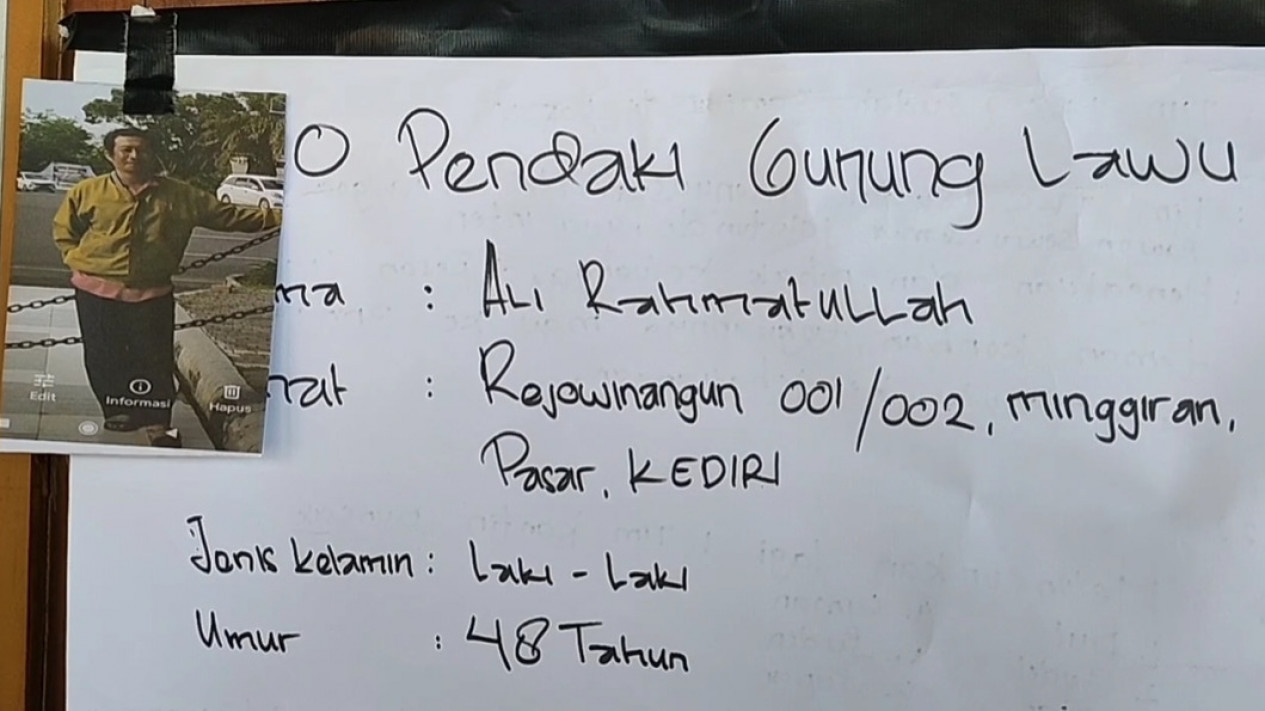 O Pendaki Gunung Lawu
ma : ALI Rahmatullah
mat : Rejowinangun 001/002, minggiran,
Pasar, KEDIRI
Jenis kelamin : Laki - Laki
Umur : 48 Tahun
Edit
Informasi
Hapus